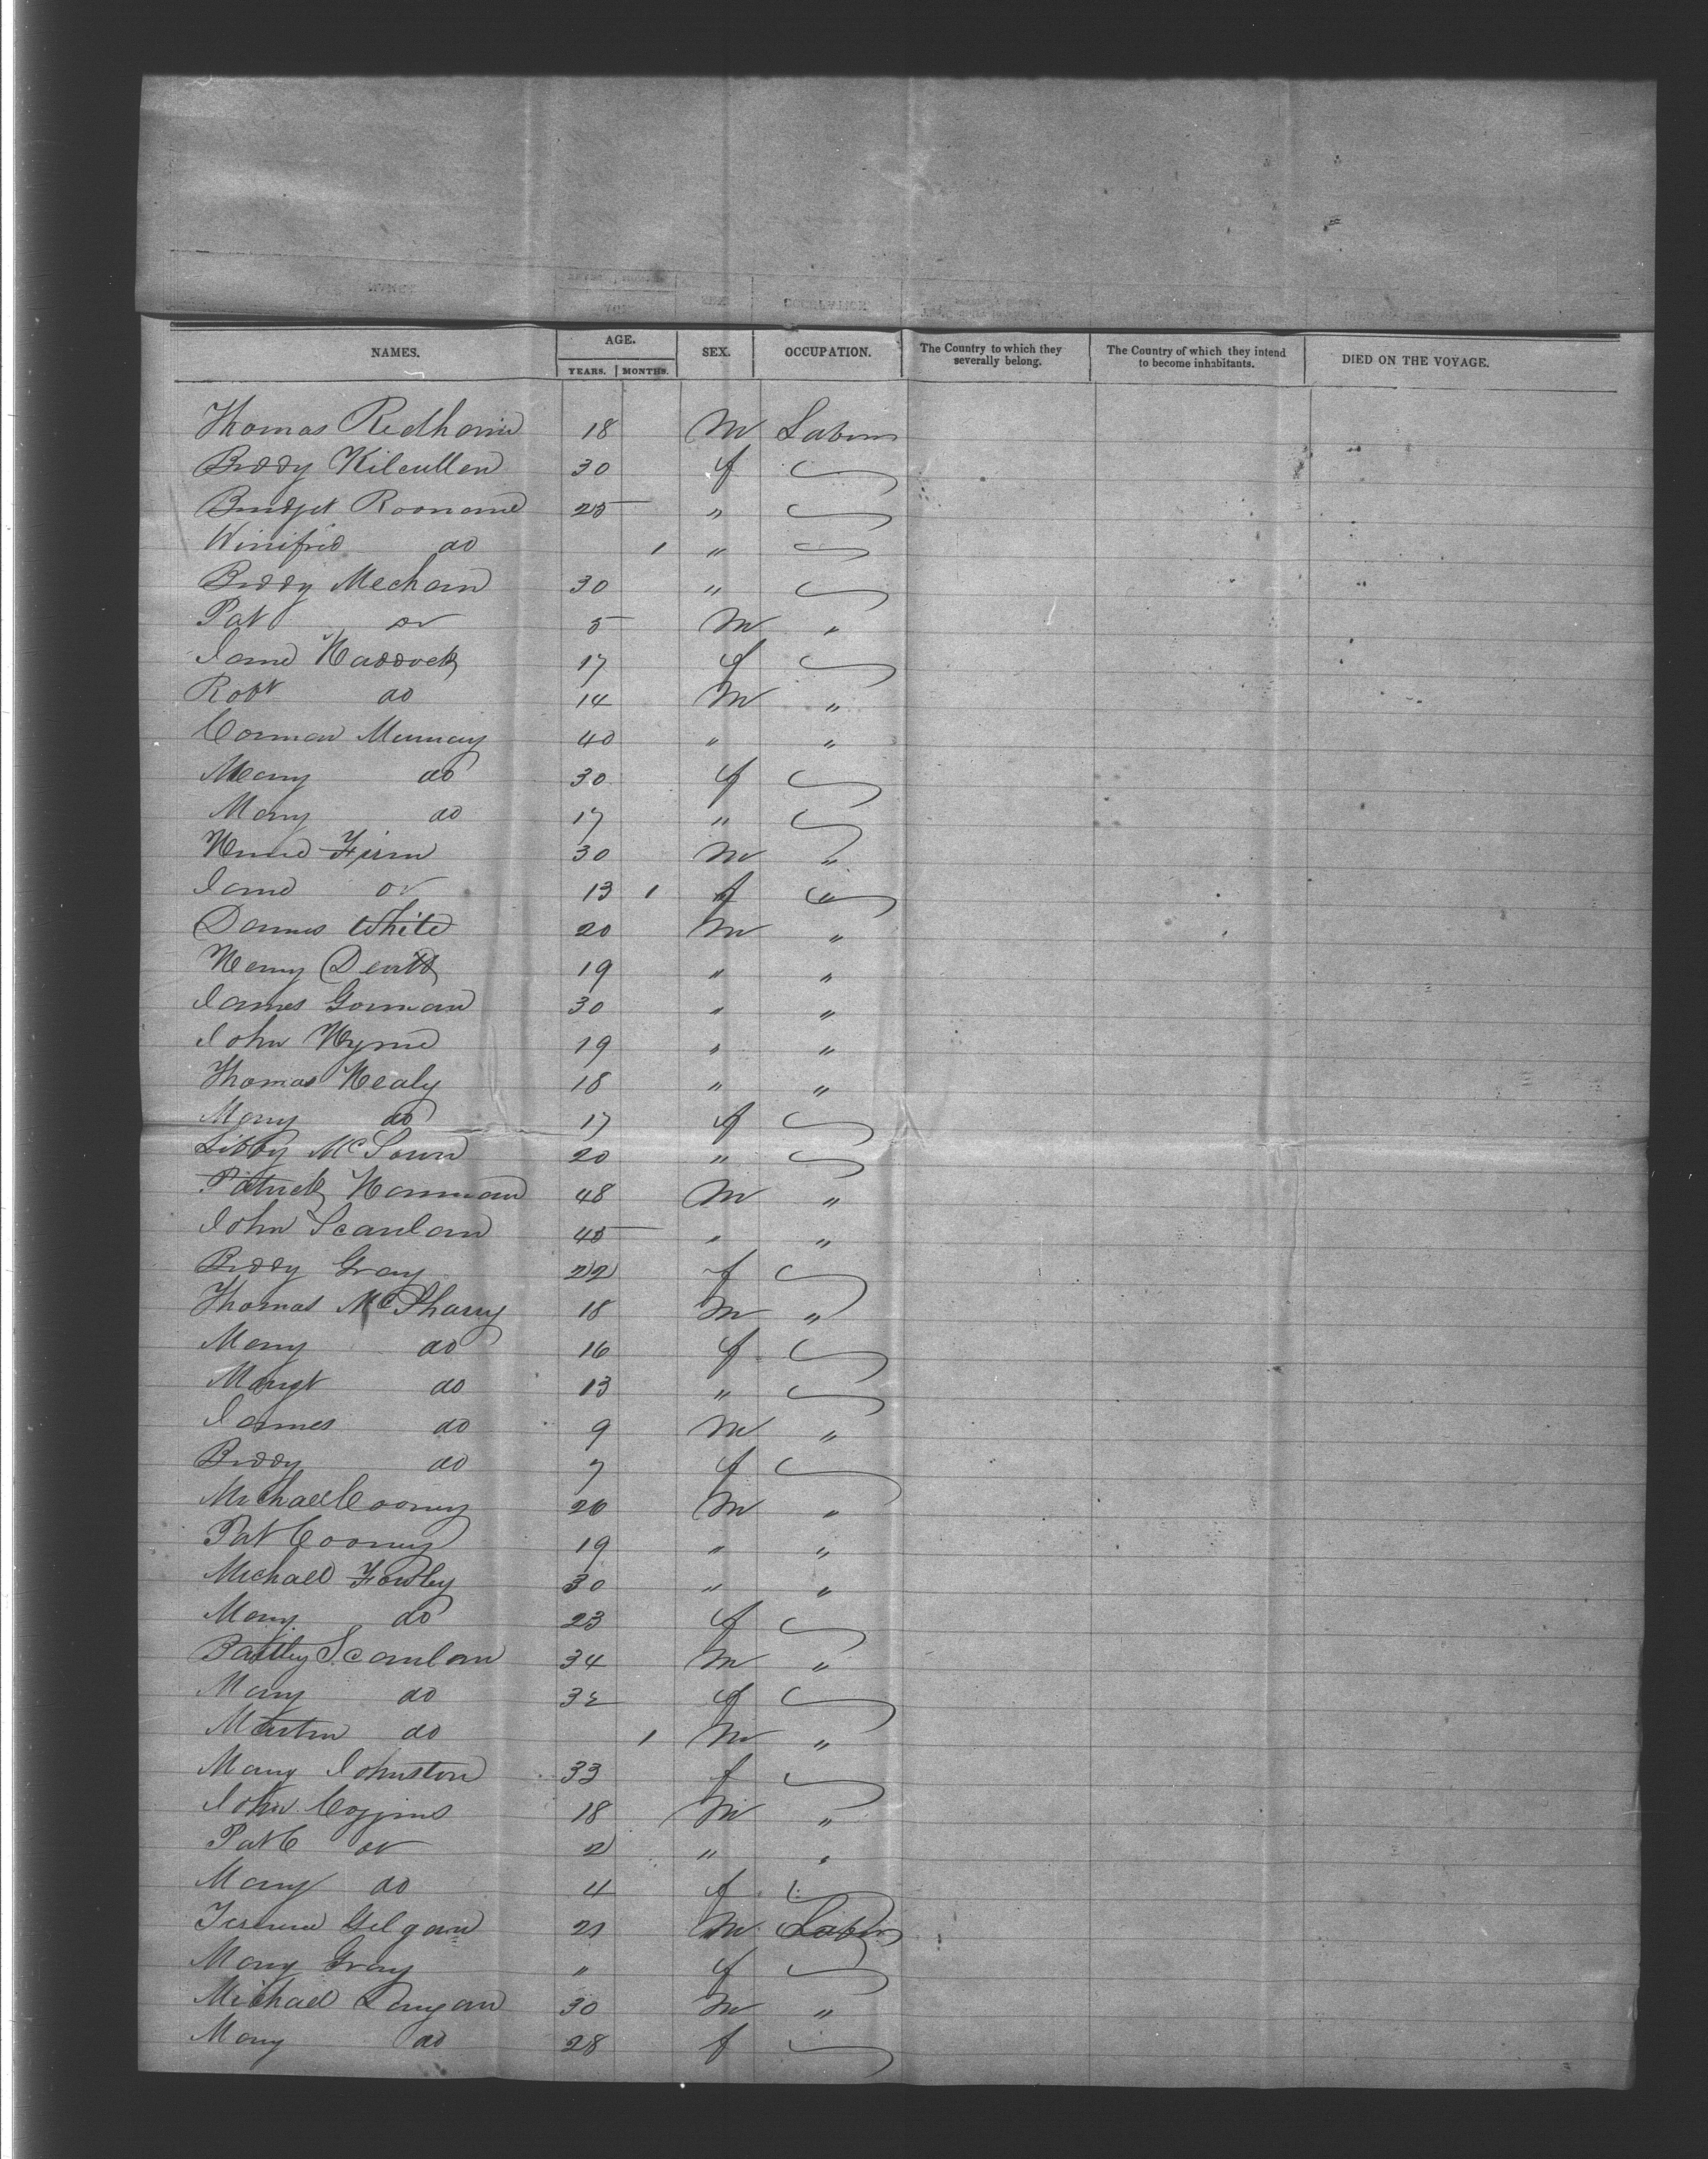 NAMES. AGE. YEARS. MONTHS. SEX. OCCUPATION. The Country to which they severally belong. The Country of which they intend to become inhabitants. DIED ON THE VOYAGE.
Thomas 18 M Labour
Biddy Kilcullen 30 f
Bridget 25 "
Winifrid do 1 "
Biddy Mechan 30 "
Pat do 5 M "
Jane Haddock 17 f
Robt do 14 M "
Murray 40 " "
Mary do 30 f
Mary do 17 "
30 M "
Jane do 13 1 f "
White 20 M "
Henry 19 " "
James Gorman 30 " "
John 19 " "
Thomas Healy 18 " "
Mary do 17 f
Libby 20 "
Patrick 48 M "
John Scanlan 45 " "
Biddy Gray 22 f
Thomas McSharry 18 M "
Mary do 16 f
Margt do 13 "
James do 9 M "
Biddy do 7 f
Michael Cooney 20 M "
Pat Cooney 19 " "
Michael Fowley 30 " "
Mary do 23 f
Battley Scanlan 34 M "
Mary do 32 f
Martin do 1 M "
Mary Johnston 33 f
John Coggins 18 M "
do 2 " "
Mary do 4 f
Gilgan 21 M Labour
Mary Gray " f
Michael 30 M "
Mary do 28 f